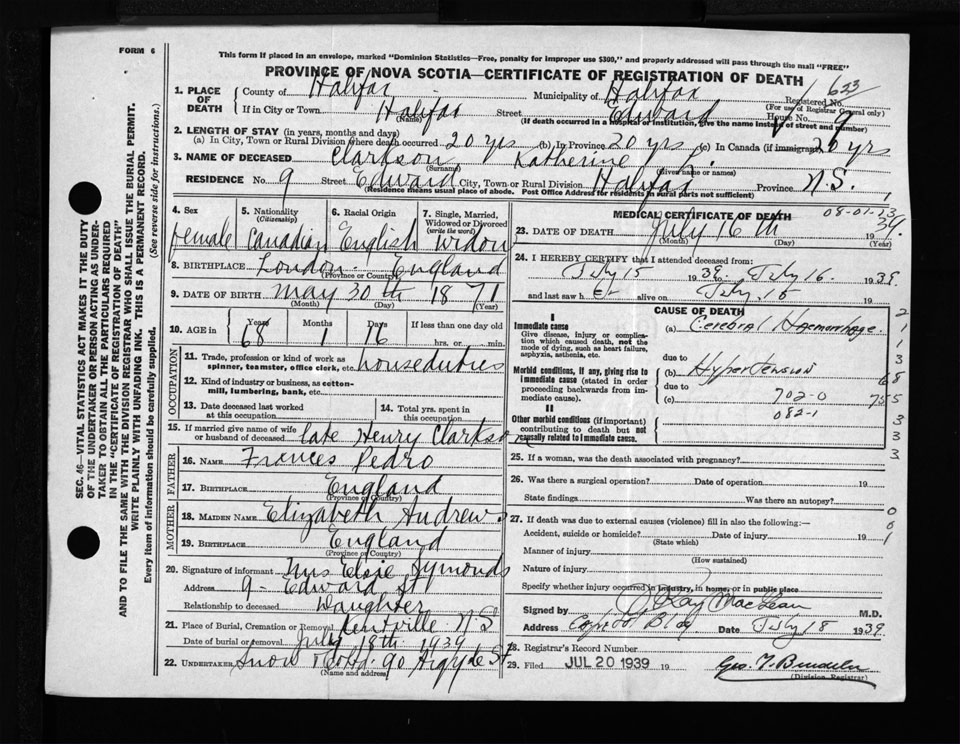 FORM 6
This form if placed in an envelope, marked "Dominion Statistics—Free, penalty for improper use $300," and properly addressed will pass through the mail "FREE"
PROVINCE OF NOVA SCOTIA—CERTIFICATE OF REGISTRATION OF DEATH
SEC. 46—VITAL STATISTICS ACT MAKES IT THE DUTY
OF THE UNDERTAKER OR PERSON ACTING AS UNDER-
TAKER TO OBTAIN ALL THE PARTICULARS REQUIRED
IN THE "CERTIFICATE OF REGISTRATION OF DEATH"
AND TO FILE THE SAME WITH THE DIVISION REGISTRAR WHO SHALL ISSUE THE BURIAL PERMIT.
WRITE PLAINLY WITH UNFADING INK. THIS IS A PERMANENT RECORD.
Every item of information should be carefully supplied. (See reverse side for instructions.)
1. PLACE OF DEATH County of Halifax Municipality of Halifax Registered No. 1623
(For use of Registrar General only)
If in City or Town Halifax Street Edward House No. 9
(Name) (If death occurred in a hospital or institution, give the name instead of street and number)
2. LENGTH OF STAY (in years, months and days)
(a) In City, Town or Rural Division where death occurred 20 yrs (b) In Province 20 yrs (c) In Canada (if immigrant) 20 yrs
3. NAME OF DECEASED Clarkson, Katherine
(Surname) (Given name or names)
RESIDENCE No. 9 Street Edward City, Town or Rural Division Halifax Province N.S.
(Residence means usual place of abode. Post Office Address for residents in rural parts not sufficient)
4. Sex female
5. Nationality (Citizenship) Canadian
6. Racial Origin English
7. Single, Married, Widowed or Divorced (write the word) Widow
8. BIRTHPLACE London England
(Province or Country)
9. DATE OF BIRTH May 30th 1871
(Month) (Day) (Year)
10. AGE in Years 68 Months 1 Days 16 If less than one day old
hrs. or min.
OCCUPATION
11. Trade, profession or kind of work as spinner, teamster, office clerk, etc. houseduties
12. Kind of industry or business, as cotton-mill, lumbering, bank, etc.
13. Date deceased last worked at this occupation
14. Total yrs. spent in this occupation
15. If married give name of wife or husband of deceased late Henry Clarkson
FATHER
16. NAME Frances Pedro
17. BIRTHPLACE England
(Province or Country)
MOTHER
18. MAIDEN NAME Elizabeth Andrews
19. BIRTHPLACE England
(Province or Country)
20. Signature of informant Mrs Elsie Symonds
Address 9 - Edward St
Relationship to deceased Daughter
21. Place of Burial, Cremation or Removal Kentville N.S
Date of burial or removal July 18th 1939
22. UNDERTAKER Snow 90 Argyle St
(Name and address)
MEDICAL CERTIFICATE OF DEATH 08-01-13
23. DATE OF DEATH July 16th 1939
(Month) (Day) (Year)
24. I HEREBY CERTIFY that I attended deceased from
July 15 1939 to July 16 1939
and last saw her alive on July 15 19
CAUSE OF DEATH
I
Immediate cause
Give disease, injury or complication which caused death, not the mode of dying, such as heart failure, asphyxia, asthenia, etc.
(a) Cerebral Haemorrhage
due to
Morbid conditions, if any, giving rise to immediate cause (stated in order proceeding backwards from immediate cause).
(b) Hypertension
due to
(c) 702-0
082-1
II
Other morbid conditions (if important) contributing to death but not causally related to immediate cause.
25. If a woman, was the death associated with pregnancy?
26. Was there a surgical operation? Date of operation 19
State findings Was there an autopsy?
27. If death was due to external causes (violence) fill in also the following:—
Accident, suicide or homicide? Date of injury 19
(State which)
Manner of injury
(How sustained)
Nature of injury
Specify whether injury occurred in industry, in home, or in public place
Signed by J. Ray MacLean M.D.
Address Capitol Bldg Date July 18 1939
28. Registrar's Record Number
29. Filed JUL 20 1939 19
(Division Registrar)